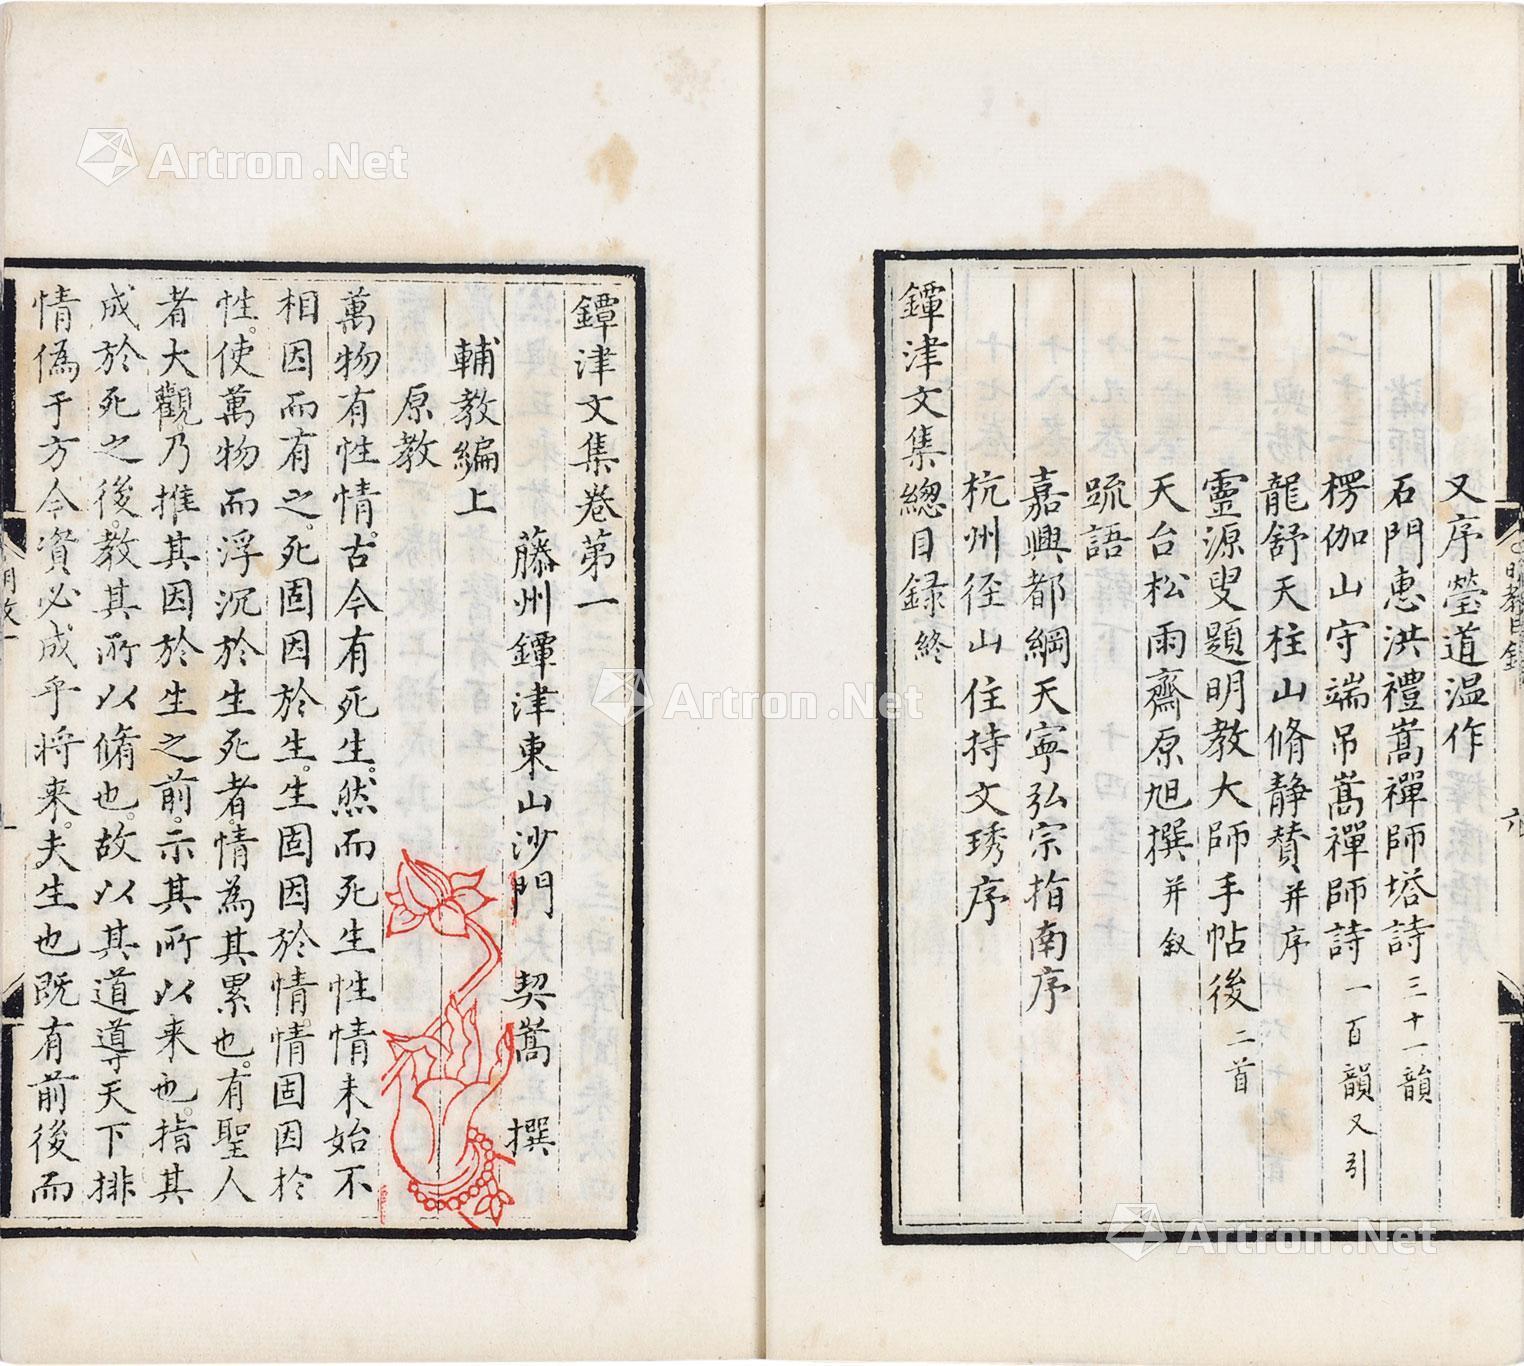 又序瑩道温作
石門惠洪禮嵩禪師塔詩三十一韻
楞伽山守端吊嵩禪師詩一百韻又引
龍舒天柱山脩静賛并序
靈源叟題明教大師手帖後二首
天台松雨齋原旭撰并叙
疏語
嘉興都綱天寧弘宗指南序
杭州徑山住持文琇序
鐔津文集總目録終
鐔津文集卷第一
藤州鐔津東山沙門 契嵩 撰
輔教編上
原教
萬物有性情。古今有死生。然而死生性情未始不
相因而有之。死固因於生。生固因於情。情固因於
性。使萬物而浮沉於生死者。情為其累也。有聖人
者大觀乃推其因於生之前。示其所以来也。指其
成於死之後。教其所以脩也。故以其道導天下排
情偽于方今資必成乎将来。夫生也既有前後而
Artron.Net
Artron.Net
Artron.Net